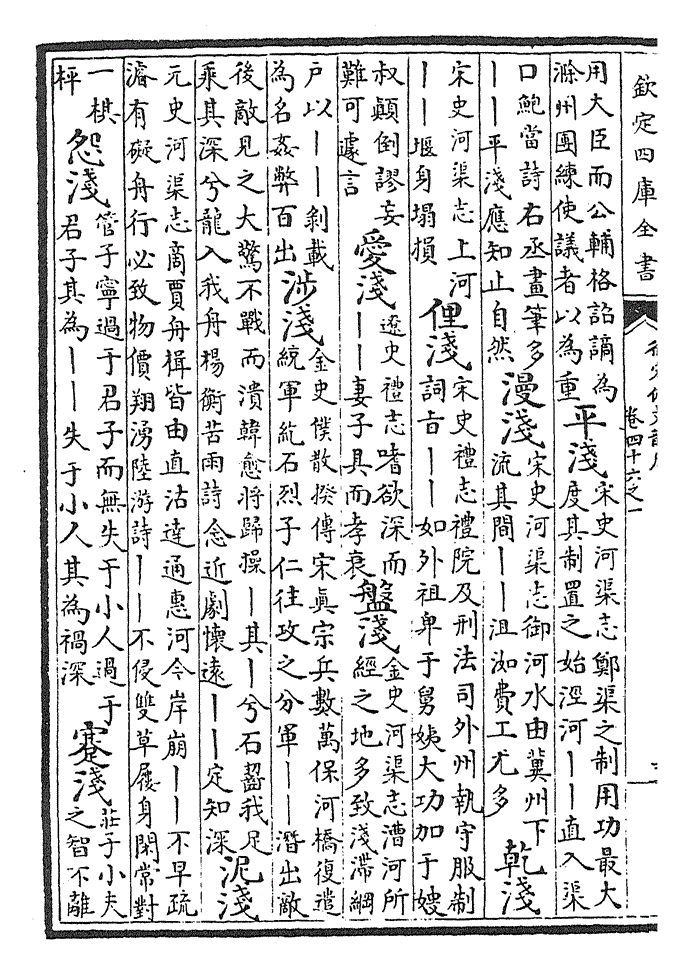 欽定四庫全書
卷四十六之一
用大臣而公輔格詔謫為
滁州團練使議者以為重
平淺
宋史河渠志鄭渠之制用功最大
度其制置之始涇河——直入渠
口鮑當詩右丞畫筆多
——平淺應知止自然
漫淺
宋史河渠志御河水由冀州下
流其間——沮洳費工尤多
乾淺
宋史河渠志上河
——堰身塌損
俚淺
宋史禮志禮院及刑法司外州執守服制
詞旨——如外祖卑于舅姨大功加于嫂
叔顛倒謬妄
難可遽言
愛淺
遼史禮志嗜欲深而
——妻子具而孝衰
盤淺
金史河渠志漕河所
經之地多致淺滯綱
户以——剝載
為名姦弊百出
涉淺
金史僕散揆傳宋眞宗兵數萬保河橋復遣
統軍紇石烈子仁往攻之分軍——潛出敵
後敵見之大驚不戰而潰韓愈將歸操—其—兮石齧我足
乘其深兮龍入我舟楊衡苦雨詩念近劇懷遠——定知深
泥淺
元史河渠志商賈舟楫皆由直沽達通惠河今岸崩——不早疏
濬有礙舟行必致物價翔湧陸游詩——不侵雙草屨身閑常對
一棋
枰
怨淺
管子寧過于君子而無失于小人過于
君子其為——失于小人其為禍深
蹇淺
莊子小夫
之智不離